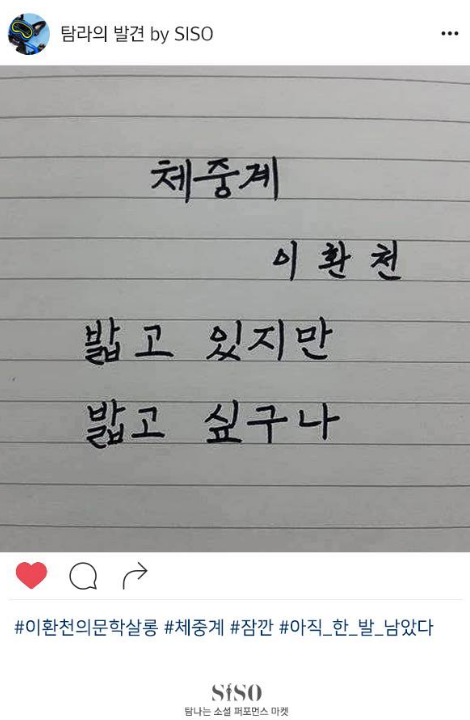 탐라의 발견 by SISO
체중계
이환천
밟고 있지만
밟고 싶구나
#이환천의문학살롱 #체중계 #잠깐 #아직_한_발_남았다
SISO
탐나는 소셜 퍼포먼스 마켓